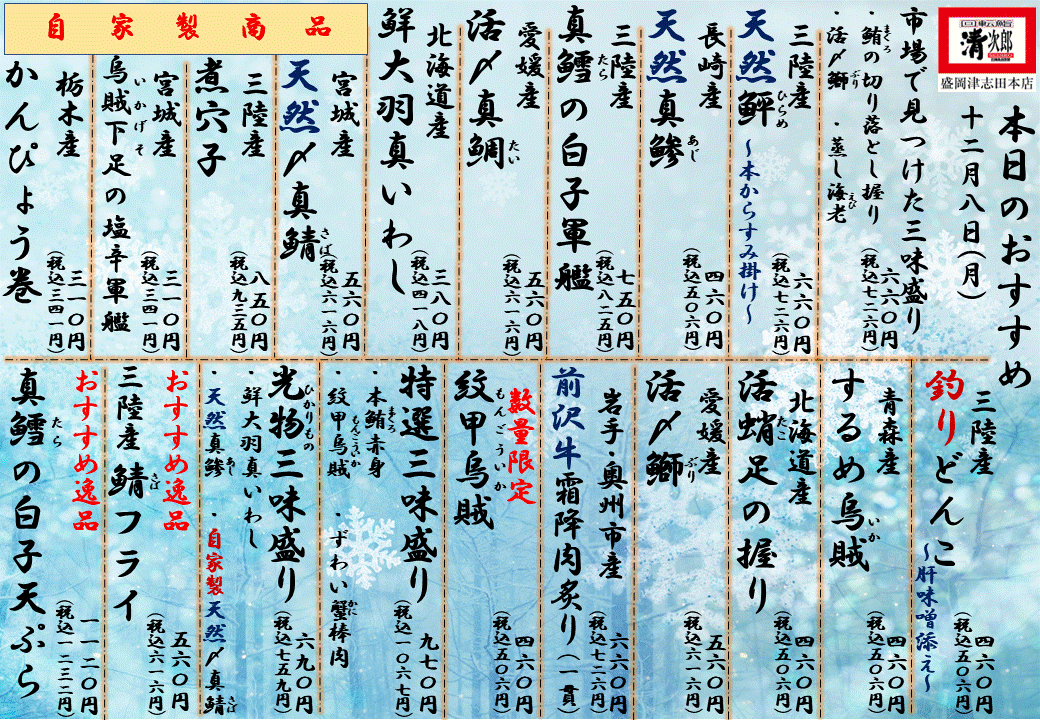 回転鮨
清次郎
盛岡津志田本店
本日のおすすめ
十二月八日(月)
市場で見つけた三味盛り
・鮪の切り落とし握り
まぐろ
・活〆鰤 ・蒸し海老
ぶり
えび
六六〇円
(税込七二六円)
三陸産
天然鮃
ひらめ
～本からすみ掛け～
六六〇円
(税込七二六円)
長崎産
天然真鯵
あじ
四六〇円
(税込五〇六円)
三陸産
真鱈の白子軍艦
たら
七五〇円
(税込八二五円)
愛媛産
活〆真鯛
たい
五六〇円
(税込六一六円)
北海道産
鮮大羽真いわし
三八〇円
(税込四一八円)
自家製商品
宮城産
天然〆真鯖
さば
五六〇円
(税込六一六円)
三陸産
煮穴子
八五〇円
(税込九三五円)
宮城産
烏賊下足の塩辛軍艦
いかげそ
三一〇円
(税込三四一円)
栃木産
かんぴょう巻
三一〇円
(税込三四一円)
三陸産
釣りどんこ
～肝味噌添え～
四六〇円
(税込五〇六円)
青森産
するめ烏賊
いか
四六〇円
(税込五〇六円)
北海道産
活蛸足の握り
たこ
四六〇円
(税込五〇六円)
愛媛産
活〆鰤
ぶり
五六〇円
(税込六一六円)
岩手・奥州市産
前沢牛霜降肉炙り(一貫)
六六〇円
(税込七二六円)
数量限定
紋甲烏賊
もんごういか
四六〇円
(税込五〇六円)
特選三味盛り
・本鮪赤身
まぐろ
・紋甲烏賊 ・ずわい蟹棒肉
もんごういか
かに
九七〇円
(税込一〇六七円)
光物三味盛り
ひかりもの
・鮮大羽真いわし
・天然真鯵 ・自家製天然〆真鯖
あじ
さば
六九〇円
(税込七五九円)
おすすめ逸品
三陸産 鯖フライ
さば
五六〇円
(税込六一六円)
おすすめ逸品
真鱈の白子天ぷら
たら
一一二〇円
(税込一二三二円)